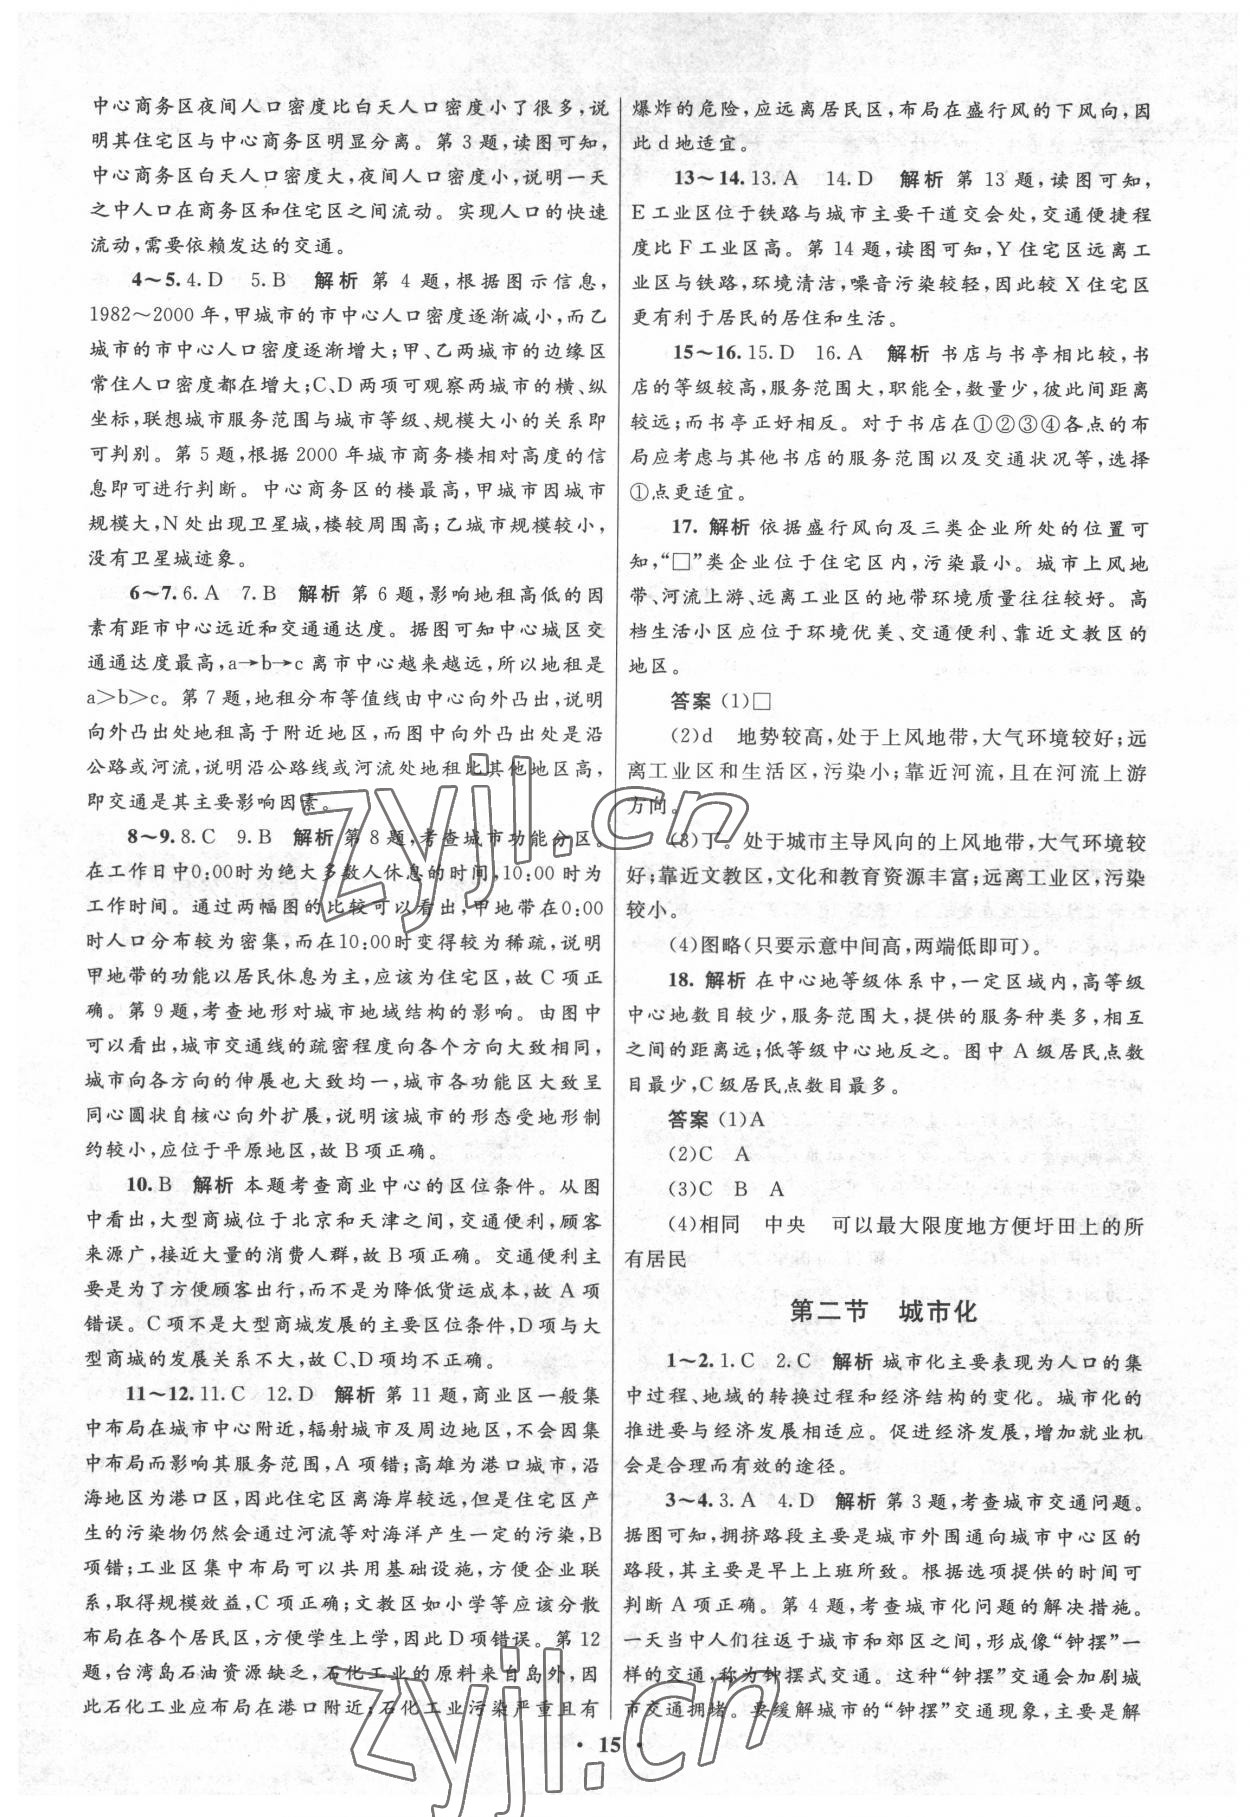 中心商务区夜间人口密度比白天人口密度小了很多,说
明其住宅区与中心商务区明显分离。第3题,读图可知,
中心商务区白天人口密度大,夜间人口密度小,说明一天
之中人口在商务区和住宅区之间流动。实现人口的快速
流动,需要依赖发达的交通。
4～5.4.D 5.B 解析 第4题,根据图示信息,
1982～2000年,甲城市的市中心人口密度逐渐减小,而乙
城市的市中心人口密度逐渐增大;甲、乙两城市的边缘区
常住人口密度都在增大;C、D两项可观察两城市的横、纵
坐标,联想城市服务范围与城市等级、规模大小的关系即
可判别。第5题,根据2000年城市商务楼相对高度的信
息即可进行判断。中心商务区的楼最高,甲城市因城市
规模大,N处出现卫星城,楼较周围高;乙城市规模较小,
没有卫星城迹象。
6～7.6.A 7.B 解析 第6题,影响地租高低的因
素有距市中心远近和交通通达度。据图可知中心城区交
通通达度最高,a→b→c离市中心越来越远,所以地租是
a＞b＞c。第7题,地租分布等值线由中心向外凸出,说明
向外凸出处地租高于附近地区,而图中向外凸出处是沿
公路或河流,说明沿公路线或河流处地租比其他地区高,
即交通是其主要影响因素。
8～9.8.C 9.B 解析 第8题,考查城市功能分区。
在工作日中0:00时为绝大多数人休息的时间,10:00时为
工作时间。通过两幅图的比较可以看出,甲地带在0:00
时人口分布较为密集,而在10:00时变得较为稀疏,说明
甲地带的功能以居民休息为主,应该为住宅区,故C项正
确。第9题,考查地形对城市地域结构的影响。由图中
可以看出,城市交通线的疏密程度向各个方向大致相同,
城市向各方向的伸展也大致均一,城市各功能区大致呈
同心圆状自核心向外扩展,说明该城市的形态受地形制
约较小,应位于平原地区,故B项正确。
10.B 解析 本题考查商业中心的区位条件。从图
中看出,大型商城位于北京和天津之间,交通便利,顾客
来源广,接近大量的消费人群,故B项正确。交通便利主
要是为了方便顾客出行,而不是为降低货运成本,故A项
错误。C项不是大型商城发展的主要区位条件,D项与大
型商城的发展关系不大,故C、D项均不正确。
11～12.11.C 12.D 解析 第11题,商业区一般集
中布局在城市中心附近,辐射城市及周边地区,不会因集
中布局而影响其服务范围,A项错;高雄为港口城市,沿
海地区为港口区,因此住宅区离海岸较远,但是住宅区产
生的污染物仍然会通过河流等对海洋产生一定的污染,B
项错;工业区集中布局可以共用基础设施,方便企业联
系,取得规模效益,C项正确;文教区如小学等应该分散
布局在各个居民区,方便学生上学,因此D项错误。第12
题,台湾岛石油资源缺乏,石化工业的原料来自岛外,因
此石化工业应布局在港口附近;石化工业污染严重且有
爆炸的危险,应远离居民区,布局在盛行风的下风向,因
此d地适宜。
13～14.13.A 14.D 解析 第13题,读图可知,
E工业区位于铁路与城市主要干道交会处,交通便捷程
度比F工业区高。第14题,读图可知,Y住宅区远离工
业区与铁路,环境清洁,噪音污染较轻,因此较X住宅区
更有利于居民的居住和生活。
15～16.15.D 16.A 解析 书店与书亭相比较,书
店的等级较高,服务范围大,职能全,数量少,彼此间距离
较远;而书亭正好相反。对于书店在①②③④各点的布
局应考虑与其他书店的服务范围以及交通状况等,选择
①点更适宜。
17.解析 依据盛行风向及三类企业所处的位置可
知,“□”类企业位于住宅区内,污染最小。城市上风地
带、河流上游、远离工业区的地带环境质量往往较好。高
档生活小区应位于环境优美、交通便利、靠近文教区的
地区。
答案 (1)□
(2)d 地势较高,处于上风地带,大气环境较好;远
离工业区和生活区,污染小;靠近河流,且在河流上游
方向。
(3)丁。处于城市主导风向的上风地带,大气环境较
好;靠近文教区,文化和教育资源丰富;远离工业区,污染
较小。
(4)图略(只要示意中间高,两端低即可)。
18.解析 在中心地等级体系中,一定区域内,高等级
中心地数目较少,服务范围大,提供的服务种类多,相互
之间的距离远;低等级中心地反之。图中A级居民点数
目最少,C级居民点数目最多。
答案 (1)A
(2)C A
(3)C B A
(4)相同 中央 可以最大限度地方便圩田上的所
有居民
第二节 城市化
1～2.1.C 2.C 解析 城市化主要表现为人口的集
中过程、地域的转换过程和经济结构的变化。城市化的
推进要与经济发展相适应。促进经济发展,增加就业机
会是合理而有效的途径。
3～4.3.A 4.D 解析 第3题,考查城市交通问题。
据图可知,拥挤路段主要是城市外围通向城市中心区的
路段,其主要是早上上班所致。根据选项提供的时间可
判断A项正确。第4题,考查城市化问题的解决措施。
一天当中人们往返于城市和郊区之间,形成像“钟摆”一
样的交通,称为钟摆式交通。这种“钟摆”交通会加剧城
市交通拥堵。要缓解城市的“钟摆”交通现象,主要是解
· 15 ·
zyjl.cn
zyjl.cn